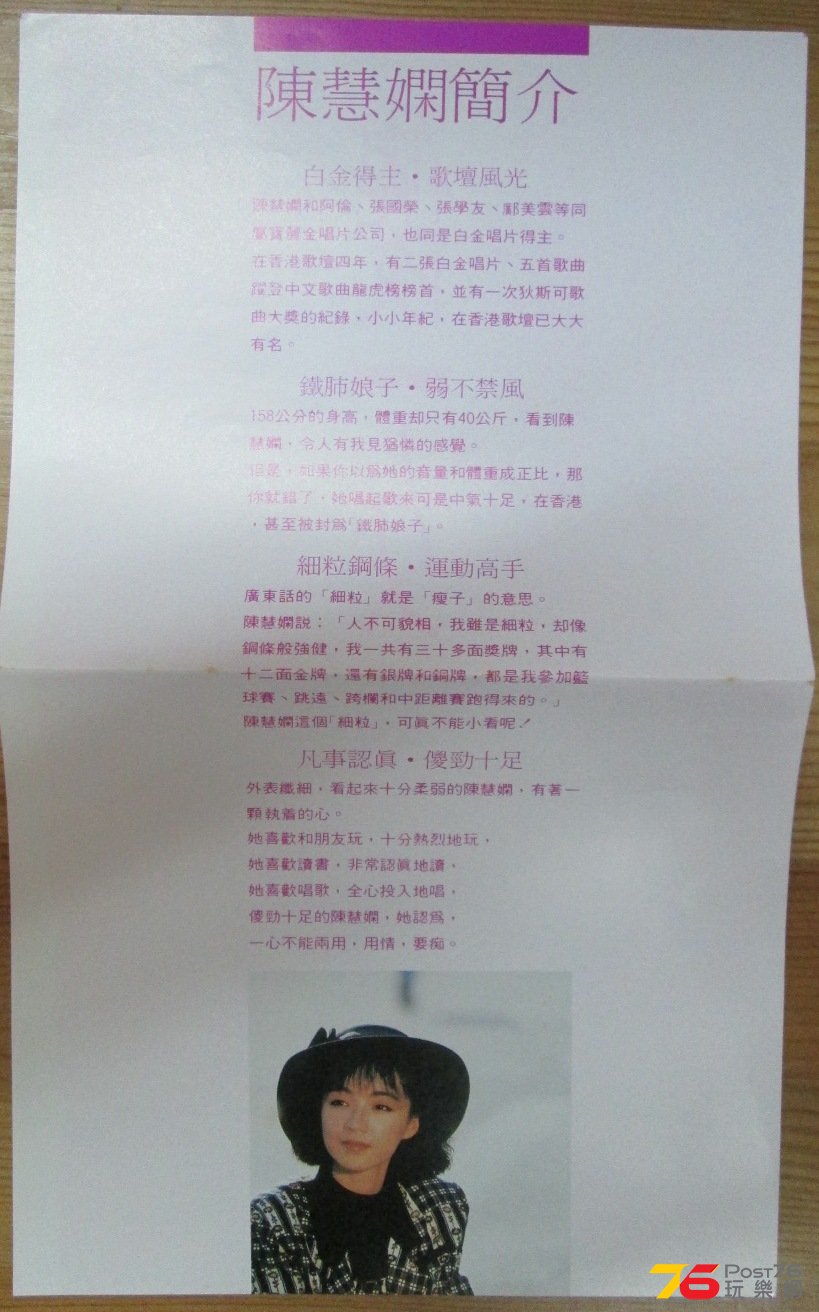 陳慧嫻簡介
白金得主・歌壇風光
陳慧嫻和阿倫、張國榮、張學友、鄺美雲等同
屬寶麗金唱片公司，也同是白金唱片得主。
在香港歌壇四年，有二張白金唱片、五首歌曲
躍登中文歌曲龍虎榜榜首，並有一次狄斯可歌
曲大獎的紀錄，小小年紀，在香港歌壇已大大
有名。
鐵肺娘子・弱不禁風
158公分的身高，體重却只有40公斤，看到陳
慧嫻，令人有我見猶憐的感覺。
但是，如果你以爲她的音量和體重成正比，那
你就錯了，她唱起歌來可是中氣十足，在香港
，甚至被封爲「鐵肺娘子」。
細粒鋼條・運動高手
廣東話的「細粒」就是「瘦子」的意思。
陳慧嫻説：「人不可貌相，我雖是細粒，却像
鋼條般強健，我一共有三十多面獎牌，其中有
十二面金牌，還有銀牌和銅牌，都是我參加籃
球賽、跳遠、跨欄和中距離賽跑得來的。」
陳慧嫻這個「細粒」，可眞不能小看呢！
凡事認眞・傻勁十足
外表纖細，看起來十分柔弱的陳慧嫻，有著一
顆執着的心。
她喜歡和朋友玩，十分熱烈地玩，
她喜歡讀書，非常認眞地讀，
她喜歡唱歌，全心投入地唱，
傻勁十足的陳慧嫻，她認爲，
一心不能兩用，用情，要痴。
76 POST76
玩樂